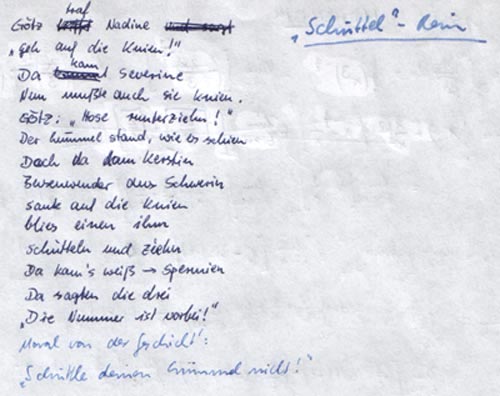 „Schüttel"-Reim
traf
Götz Nadine
„geh auf die Knien!"
kam
Da Severine
Nun mußte auch sie knien.
Götz: „Hose runterziehn!"
Der Lümmel stand, wie es schien
Doch da kam Kerstin
Busenwunder aus Schwerin
sank auf die Knien
blies einen ihm
schütteln und ziehn
Da kam's weiß → Spermien
Da sagten die drei
„Die Nummer ist vorbei!"
Moral von der Geschicht':
„Schüttle deinen Lümmel nicht!"